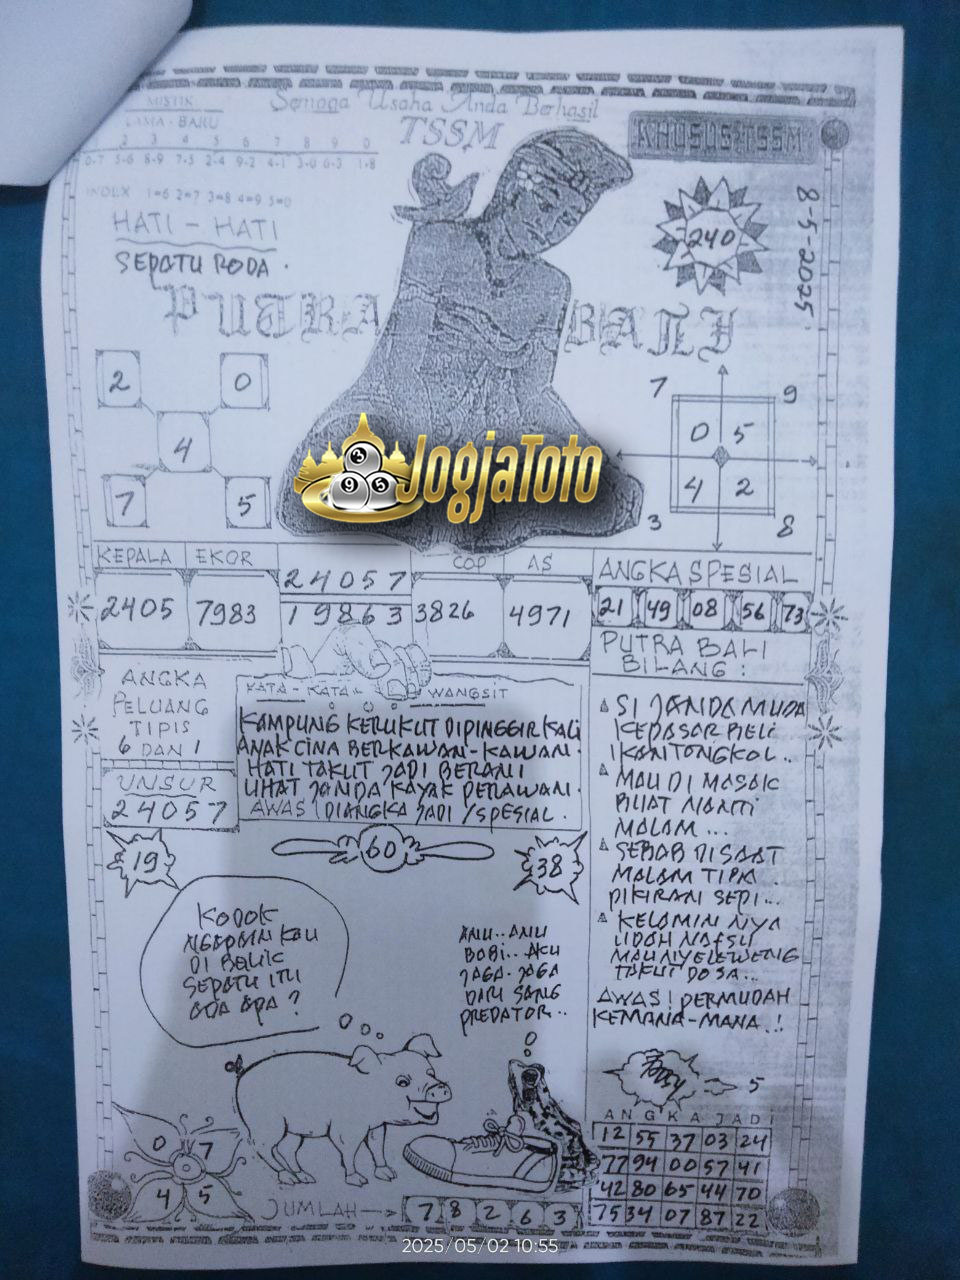 Semoga Usaha Anda Berhasil
MISTIK
LAMA - BARU
2 3 4 5 6 7 8 9 0
0-7 5-6 8-9 7-5 2-4 9-2 4-1 3-0 6-3 1-8
INDEX 1=6 2=7 3=8 4=9 5=0
TSSM
KHUSUS:TSSM
HATI - HATI
SEPATU RODA .
240
8-5-2025
PUTRA BALI
2 0
4
7 5
7 9
0 5
4 2
3 8
JogjaToto
3 9 5
KEPALA EKOR COP AS
24057
2405 7983 19863 3826 4971
ANGKA SPESIAL
21 49 08 56 73
ANGKA
PELUANG
TIPIS
6 DAN 1
UNSUR
24057
KATA - KATA WANGSIT
KAMPUNG KERUKUT DIPINGGIR KALI
ANAK CINA BERKAWAN-KAWAN.
HATI TAKUT JADI BERANI
LIHAT JANDA KAYAK PERAWAN.
AWAS! DIANGKA JADI / SPESIAL .
PUTRA BALI
BILANG :
SI JANDA MUDA
KEPASAR BELI
IKAN TONGKOL ..
MAU DI MASAK
BUAT NANTI
MALAM ...
SEBAB DISAAT
MALAM TIBA
PIKIRAN SEPI ...
KELAMIN NYA
UDAH NAFSU
MAU NYELEWENG
TAKUT DOSA ...
AWAS! PERMUDAH
KEMANA-MANA ..!
5
19
60
38
KODOK
NGAPAIN KAU
DI BALIK
SEPATU ITU
ADA APA ?
ANU .. ANU
BABI .. AKU
JAGA-JAGA
DARI SANG
PREDATOR ..
0 7
4 5
JUMLAH --> 7 8 2 6 3
ANGKA JADI
12 55 37 03 24
77 94 00 57 41
42 80 65 44 70
75 34 07 87 22
2025/05/02 10:55